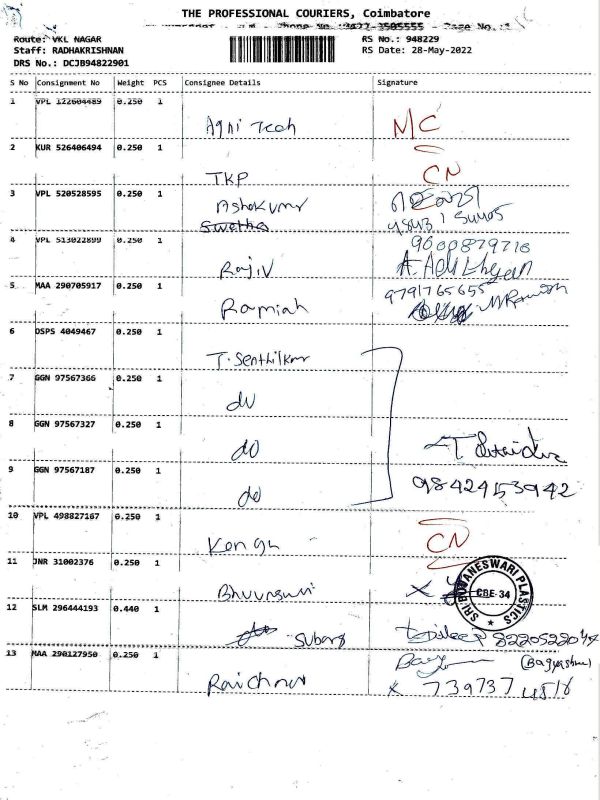 THE PROFESSIONAL COURIERS, Coimbatore
Route: VKL NAGAR
RS No.: 948229
Staff: RADHAKRISHNAN
RS Date: 28-May-2022
DRS No.: DCJB94822901
S No Consignment No Weight PCS Consignee Details Signature
1 VPL 122604489 0.250 1
Agni Tech MC
2 KUR 526406494 0.250 1
TKP CN
3 VPL 520528595 0.250 1
Ashokumar
Swetha
4 VPL 513022899 0.250 1
9600879716
Rajiv
5 MAA 290705917 0.250 1
9791765655
Ramiah
6 DSPS 4049467 0.250 1
T. Senthilkmr
7 GGN 97567366 0.250 1
do
8 GGN 97567327 0.250 1
do
9 GGN 97567187 0.250 1
do 9842453942
10 VPL 498827167 0.250 1
Kongu CN
11 JNR 31002376 0.250 1
SRI BUVANESWARI PLASTICS
CBE-34
12 SLM 296444193 0.440 1
Subas 8220522044
13 MAA 290127950 0.250 1
x 739737 4518